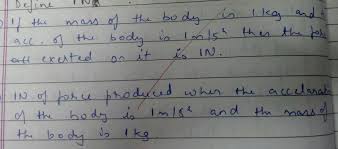 Define 1N.
If the mass of the body is 1kg and
acc. of the body is 1m/s² then the for
exerted on it is 1N.
1N of force produced when the accelarat
of the body is 1m/s² and the mass of
the body is 1 kg